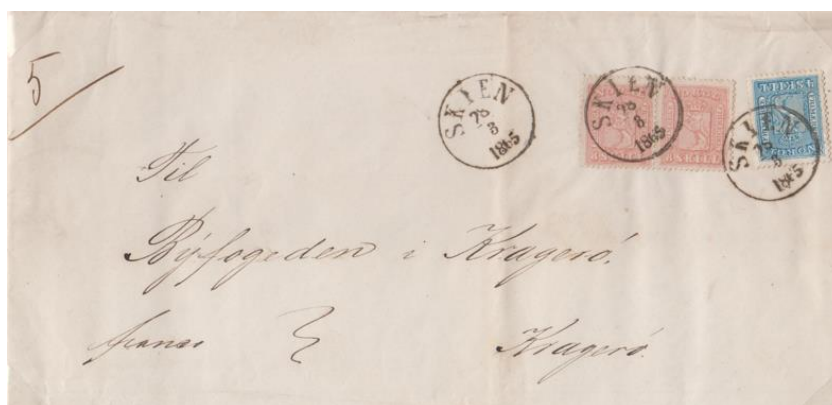 5
SKIEN
28
8
1865
SKIEN
28
8
1865
SKIEN
28
8
1865
Til
Byfogeden i Kragerö.
Kragerö.